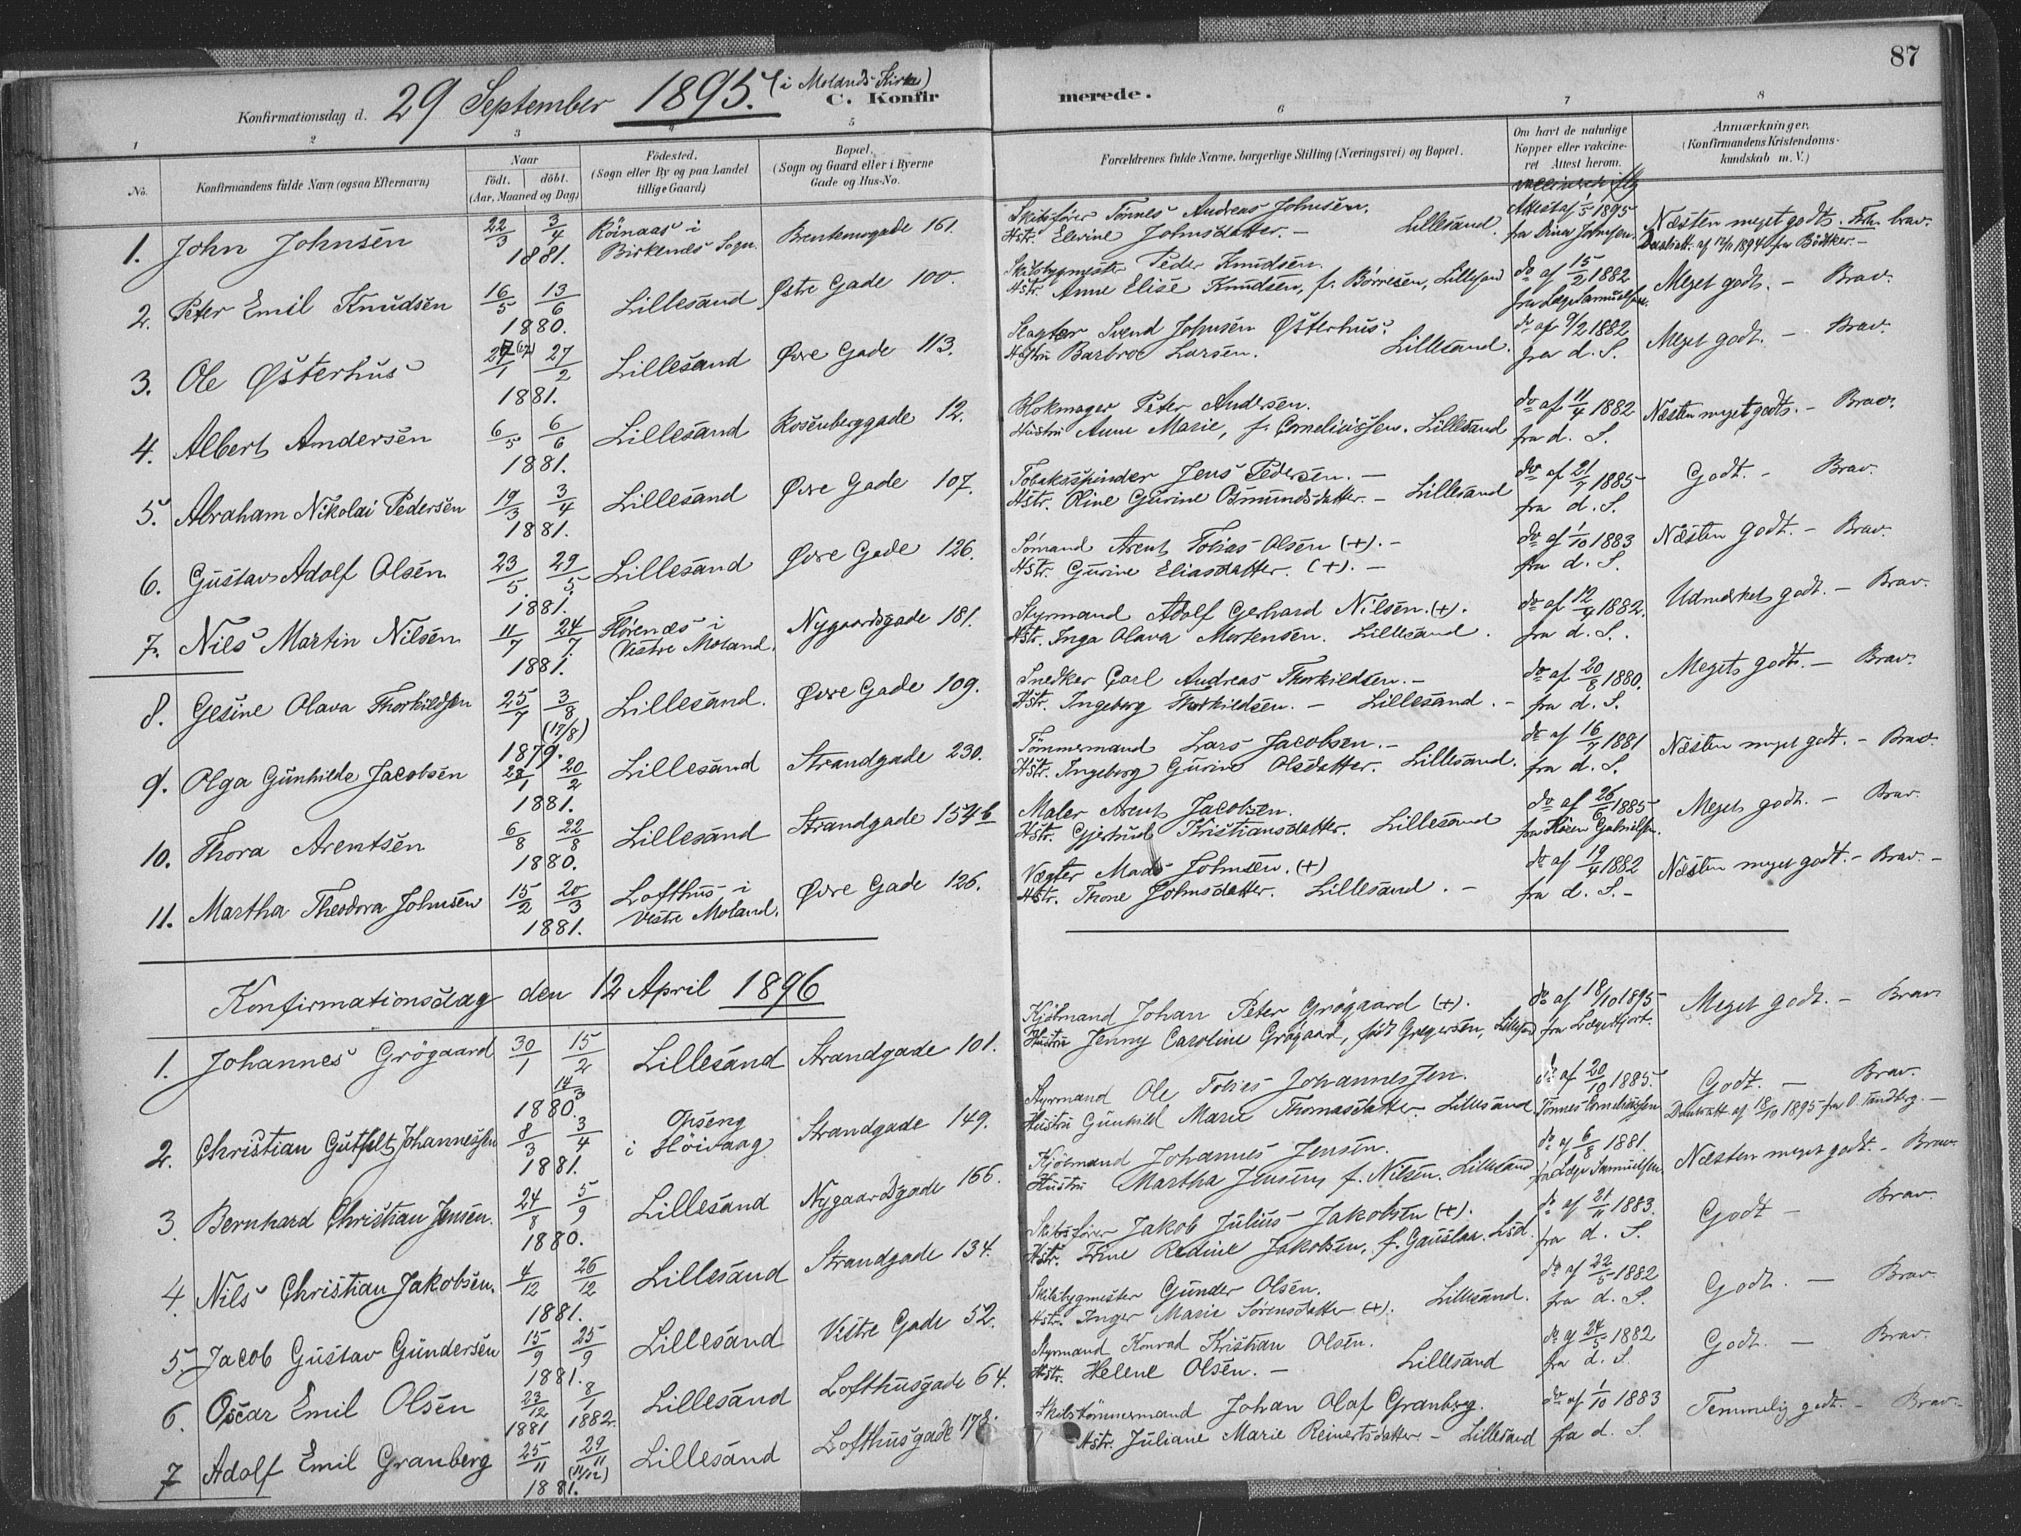 87
Konfirmationsdag d. 29 September 1895. (i Molands Kirke) C. Konfirmerede.
1 2 3 4 5 6 7 8
No.
Konfirmandens fulde Navn (ogsaa Efternavn)
Naar født. døbt. (Aar, Maaned og Dag)
Fødested. (Sogn eller By og paa Landet tillige Gaard)
Bopæl. (Sogn og Gaard eller i Byerne Gade og Hus-No.
Forældrenes fulde Navne, borgerlige Stilling (Næringsvei) og Bopæl.
Om havt de naturlige Kopper eller vaccineret Attest herom.
Anmærkninger. (Konfirmandens Kristendomskundskab m. V.)
1. John Johnsen 22/3 3/4 1881. Rönaas i Birkenes Sogn. 161. Skibsfører Tönnes Andreas Johnsen. Hstr. Elevine Johnsdatter. - Lillesand. Attest af 1/5 1895 fra Dina Johnsen. Næsten meget godt. brav.
2. Peter Emil Knudsen 16/5 13/6 1880. Lillesand Østre Gade 100. Skibsbygmester Peder Knudsen. Hstr. Anne Elise Knudsen, f. Børresen, Lillesand do af 15/2 1882 fra Læge Samuelsen. Meget godt. - Brav.
3. Ole Østerhus 27/2 1881. Lillesand Øvre Gade 113. Slagter Svend Johnsen Østerhus. Hustru Barbroe Larsen. Lillesand. do af 9/2 1882 fra d. S. Meget godt. - Brav.
4. Albert Andersen 6/5 6/6 1881. Lillesand Rosenberggade 12. Blokmager Peter Andersen. Hustru Anne Marie, f. Corneliussen. Lillesand do af 11/4 1882 fra d. S. Næsten meget godt. - Brav.
5. Abraham Nikolai Pedersen 19/3 3/4 1881. Lillesand Øvre Gade 107. Tobaksspinder Jens Pedersen. - Hstr. Oline Gurine Osmundsdatter. - Lillesand do af 21/7 1885 fra d. S. Godt. - Brav.
6. Gustav Adolf Olsen 23/5 29/5 1881. Lillesand Øvre Gade 126. Sömand Arent Tobias Olsen (+). - Hstr. Gurine Eliasdatter. (+). - do af 1/10 1883 fra d. S. Næsten godt. - Brav.
7. Nils Martin Nilsen 11/7 24/7 1881. Flørenæs i Vestre Moland. Nygaardsgade 181. Styrmand Adolf Gerhard Nilsen. (+). Hstr. Inga Olava Mortensen. Lillesand. do af 12/4 1882. fra d. S. Udmærket godt. - Brav.
8. Gesine Olava Thorkildsen 25/7 3/8 (17/8) 1879. Lillesand. Øvre Gade 109. Snedker Carl Andreas Thorkildsen. - Hstr. Ingeborg Thorkildsen. - Lillesand. - do af 20/8 1880. fra d. S. Meget godt. - Brav.
9. Olga Gunhilde Jacobsen 28/1 20/2 1881. Lillesand Strandgade 230. Tömmermand Lars Jacobsen. - Hstr. Ingeborg Gurine Olsdatter. Lillesand. do af 16/7 1881 fra d. S. Næsten meget godt. - Brav.
10. Thora Arentsen 6/8 22/8 1880. Lillesand Strandgade 154b Maler Arent Jacobsen. Hstr. Gjertrud Kristiansdatter. Lillesand do af 26/6 1885 fra Gabrielsen. Meget godt. - Brav.
11. Martha Theodora Johnsen 15/2 20/3 1881. Lofthus i Vestre Moland. Øvre Gade 126. Vægter Mads Johnsen. (+) Hstr. Thone Johnsdatter. Lillesand. - do af 19/4 1882 fra d. S. - Næsten meget godt. - Brav. -
Konfirmationsdag den 12 April 1896
1. Johannes Grögaard 30/1 15/2 14/3 1880. Lillesand Strandgade 101. Kjøbmand Johan Peter Grögaard (+). Hustru Jenny Caroline Grögaard, født Gregersen, Lillesand do af 18/10 1895 fra Læge Hjort. Meget godt. - Brav.
2. Christian Gutfelt Johannessen 8/3 3/4 1881. i Höivaag Strandgade 149. Styrmand Ole Tobias Johannessen. Hustru Gunhild Marie Thomasdatter. Lillesand do af 20/10 1885. Tönnes Corneliussen Godt. - Brav. Daabsatt. af 18/10 1895 fra O. Tandberg. -
3. Bernhard Christian Jensen. 24/8 5/9 1880. Lillesand Nygaardsgade 166. Kjöbmand Johannes Jensen. Hustru Martha Jensen, f. Nilsen. Lillesand do af 6/8 1881. fra Læge Samuelsen. Næsten meget godt. - Brav
4. Nils Christian Jakobsen. 4/12 26/12 1881. Lillesand Strandgade 134. Skibsfører Jakob Julius Jakobsen (+). Hstr. Trine Redine Jakobsen, f. Gauslaa. Lsd. do af 21/11 1883. fra d. S. Godt - Brav.
5. Jacob Gustav Gundersen 15/9 25/9 1881. Lillesand Vestre Gade 52. Skibsbygmester Gunder Olsen. Hstr. Inger Marie Sørensdatter (+). Lillesand. do af 22/5 1882 fra d. S. Godt. - Brav
6. Oscar Emil Olsen 23/12 1881 8/1 1882. Lillesand Lofthusgade 64. Styrmand Konrad Kristian Olsen. Hstr. Helene Olsen. - Lillesand do af 24/5 1882 fra d. S. Godt. - Brav.
7 Adolf Emil Granberg 25/11 29/11 (11/12) 1881. Lillesand Lofthusgade 178. Skibstömmermand Johan Olaf Granberg. Hstr. Juliane Marie Reinertsdatter - Lillesand do af 1/10 1883 fra d. S. Temmelig godt. - Brav.